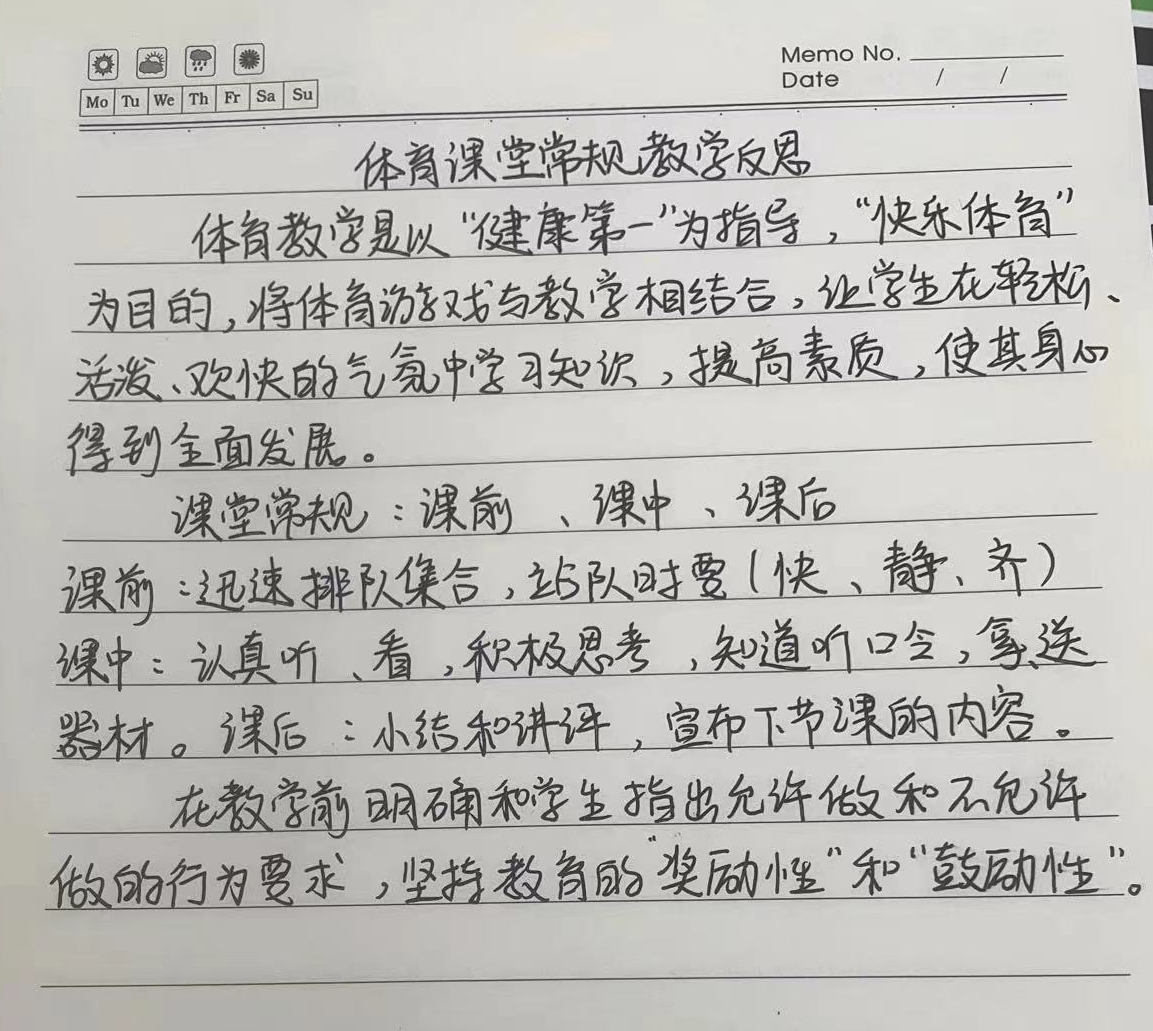 Memo No.
Date / /
Mo Tu We Th Fr Sa Su
体育课堂常规教学反思
体育教学是以“健康第一”为指导，“快乐体育”
为目的，将体育游戏与教学相结合，让学生在轻松、
活泼、欢快的气氛中学习知识，提高素质，使其身心
得到全面发展。
课堂常规：课前、课中、课后
课前：迅速排队集合，站队时要（快、静、齐）
课中：认真听、看，积极思考，知道听口令，拿送
器材。课后：小结和讲评，宣布下节课的内容。
在教学前明确和学生指出允许做和不允许
做的行为要求，坚持教育的“奖励性”和“鼓励性”。